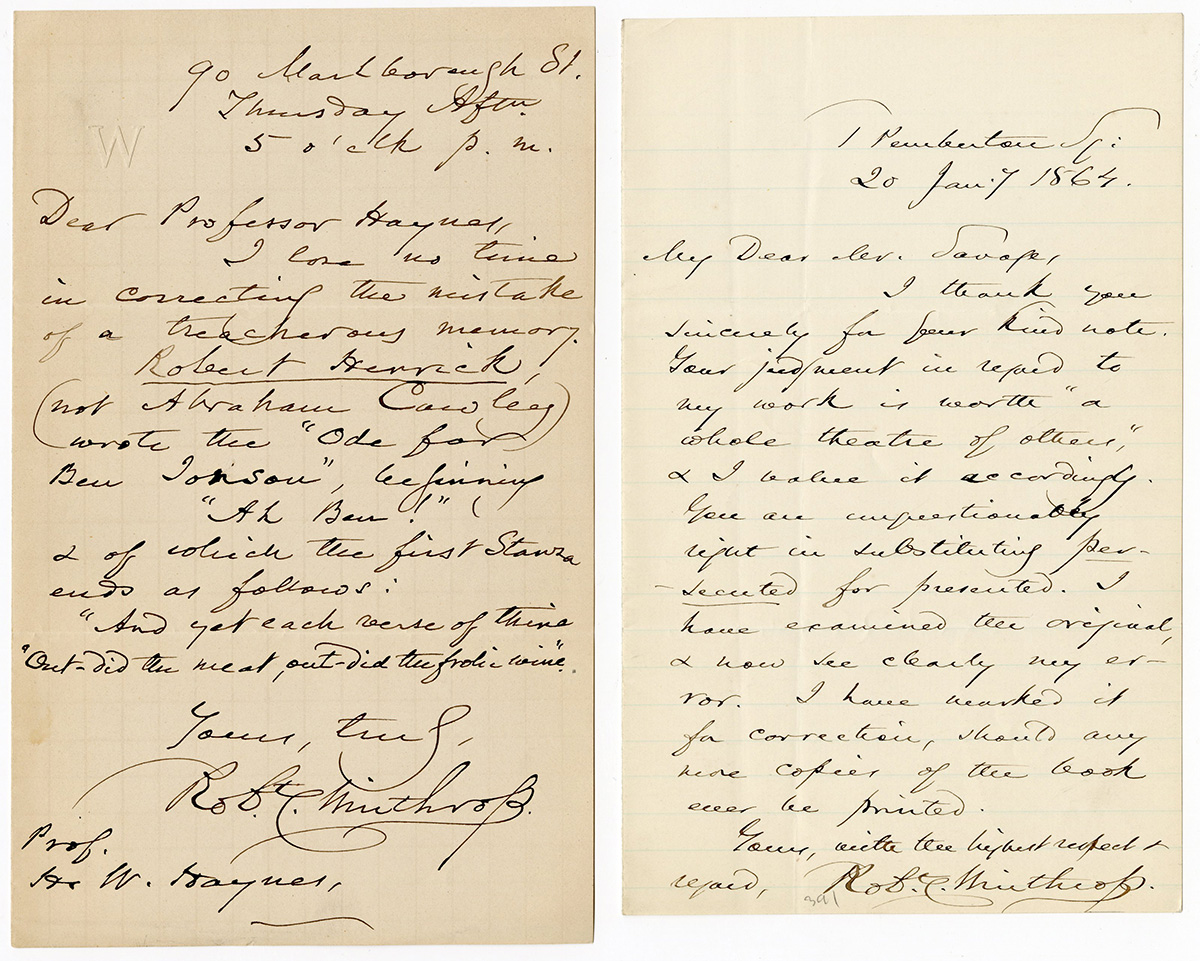 90 Marlborough St.
Thursday Aftn.
5 o'clk p. m.
W
Dear Professor Haynes,
I lose no time
in correcting the mistake
of a treacherous memory.
Robert Herrick,
(not Abraham Cowley)
wrote the "Ode for
Ben Jonson", beginning
"Ah Ben!"
& of which the first Stanza
ends as follows:
"And yet each verse of thine
"Out-did the meat, out-did the frolic wine".
Yours, truly,
Robt. C. Winthrop.
Prof.
H. W. Haynes,
1 Pemberton Sq:
20 Jany 1864.
My Dear Mr. Savage,
I thank you
sincerely for your kind note.
Your judgment in regard to
my work is worth "a
whole theatre of others,"
& I value it accordingly.
You are unquestionably
right in substituting per-
-secuted for presented. I
have examined the original,
& now see clearly my er-
ror. I have marked it
for correction, should any
more copies of the book
ever be printed.
Yours, with the highest respect &
regard, Robt. C. Winthrop.